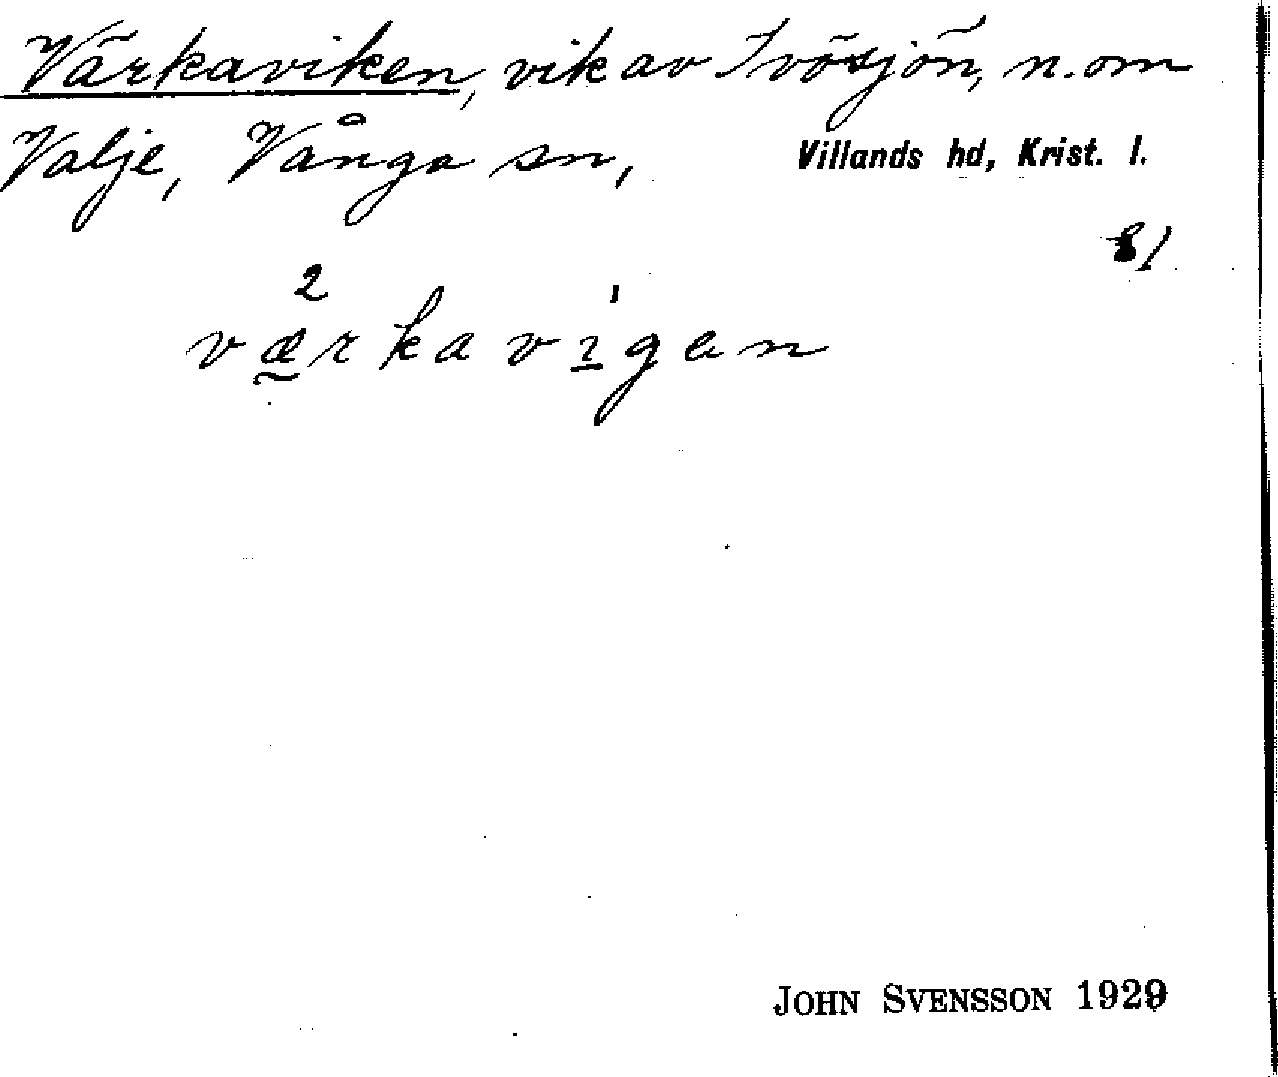 Värkaviken, vik av Ivösjön, n. om
Valje, Vånga sn, Villands hd, Krist. l.
81
2 1
værkavigen
JOHN SVENSSON 1929